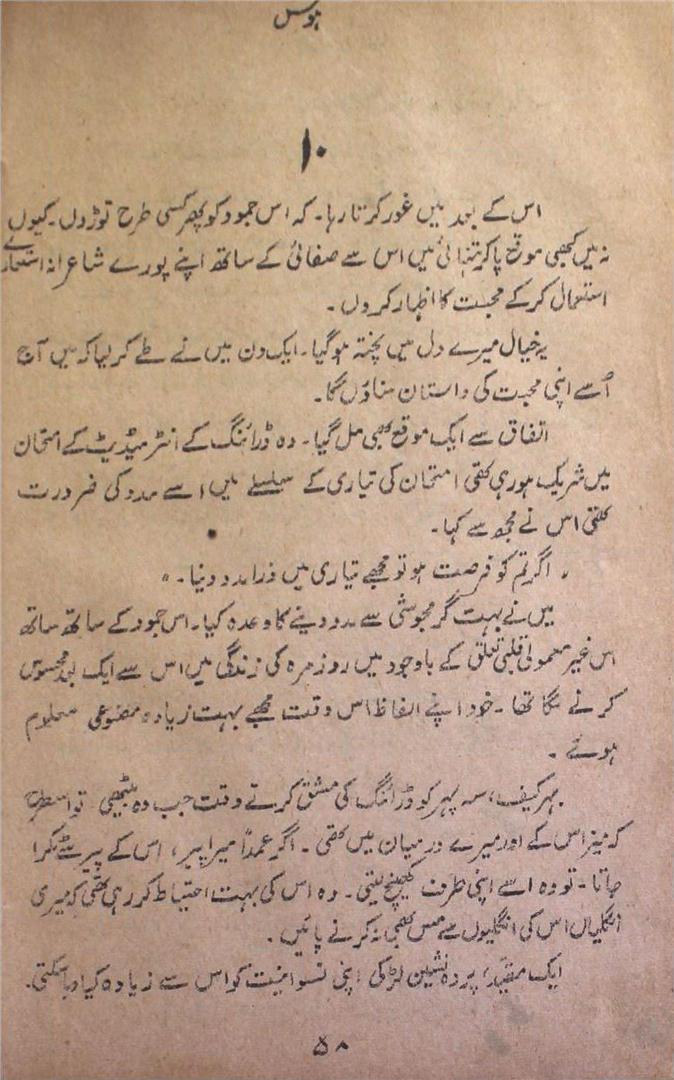 ہوس
۱۰
اس کے بعد میں غور کرتا رہا۔ کہ اس جمود کو پھر کسی طرح توڑوں۔ کیوں
نہ میں کبھی موقع پا کر تنہائی میں اس سے صفائی کے ساتھ اپنے پورے شاعرانہ استعارے
استعمال کر کے محبت کا اظہار کروں۔
یہ خیال میرے دل میں پختہ ہو گیا۔ ایک دن میں نے طے کر لیا کہ میں آج
اُسے اپنی محبت کی داستان سناؤں گا۔
اتفاق سے ایک موقع بھی مل گیا۔ وہ ڈرائنگ کے انٹرمیڈیٹ کے امتحان
میں شریک ہو رہی تھی امتحان کی تیاری کے سلسلے میں اسے مدد کی ضرورت
تھی اس نے مجھ سے کہا۔
"اگر تم کو فرصت ہو تو مجھے تیاری میں ذرا مدد دینا۔"
میں نے بہت گرمجوشی سے مدد دینے کا وعدہ کیا۔ اس جمود کے ساتھ ساتھ
اس غیر معمولی قلبی تعلق کے باوجود میں روزمرہ کی زندگی میں اس سے ایک بُعد محسوس
کرنے لگا تھا۔ خود اپنے الفاظ اس وقت مجھے بہت زیادہ مصنوعی معلوم
ہوئے۔
بہر کیف، سہ پہر کو ڈرائنگ کی مشق کرتے وقت جب وہ بیٹھی تو اسطرح
کہ میز اس کے اور میرے درمیان میں تھی۔ اگر عمداً میرا پیر، اس کے پیر سے ٹکرا
جاتا۔ تو وہ اسے اپنی طرف کھینچ لیتی۔ وہ اس کی بہت احتیاط کر رہی تھی کہ میری
انگلیاں اس کی انگلیوں سے مس بھی نہ کرنے پائیں۔
ایک مقیّد، پردہ نشین لڑکی اپنی نسوانیت کو اس سے زیادہ کیا دبا سکتی۔
۵۸